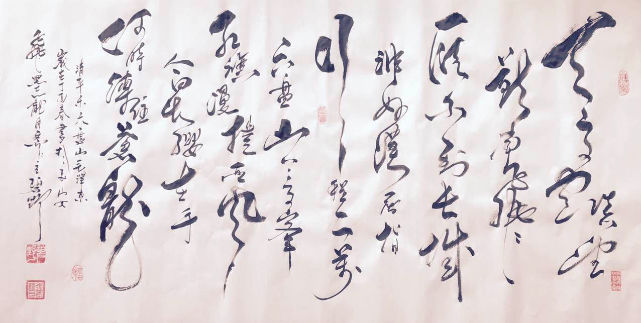 天高雲淡望
断南飛雁
不到长城
非好漢屈指
行程二萬
六盘山上高峰
红旗漫捲西风
今日长缨在手
何时缚住苍龙
清平乐六盘山毛泽东
歲在丁酉春書於